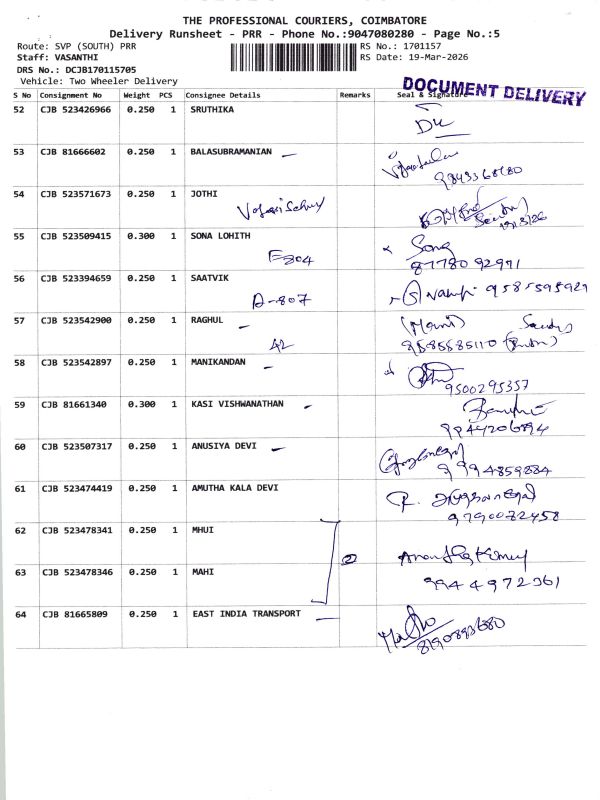 THE PROFESSIONAL COURIERS, COIMBATORE
Delivery Runsheet - PRR - Phone No.:9047080280 - Page No.:5
Route: SVP (SOUTH) PRR RS No.: 1701157
Staff: VASANTHI RS Date: 19-Mar-2026
DRS No.: DCJB170115705
Vehicle: Two Wheeler Delivery
DOCUMENT DELIVERY
S No Consignment No Weight PCS Consignee Details Remarks Seal & Signature
52 CJB 523426966 0.250 1 SRUTHIKA
53 CJB 81666602 0.250 1 BALASUBRAMANIAN
54 CJB 523571673 0.250 1 JOTHI
55 CJB 523509415 0.300 1 SONA LOHITH
F-304
Sona
87780 92991
56 CJB 523394659 0.250 1 SAATVIK
A-807
57 CJB 523542900 0.250 1 RAGHUL
42
58 CJB 523542897 0.250 1 MANIKANDAN
9500295357
59 CJB 81661340 0.300 1 KASI VISHWANATHAN
60 CJB 523507317 0.250 1 ANUSIYA DEVI
9994859884
61 CJB 523474419 0.250 1 AMUTHA KALA DEVI
9790072458
62 CJB 523478341 0.250 1 MHUI
63 CJB 523478346 0.250 1 MAHI
9944972361
64 CJB 81665809 0.250 1 EAST INDIA TRANSPORT